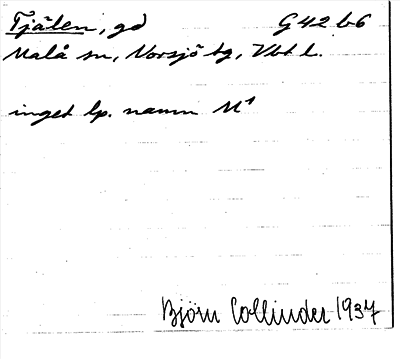 Tjälen, gd G 42 b6
Malå sn, Norsjö tg, Vbt l.
inget lp. namn M¹
Björn Collinder 1937